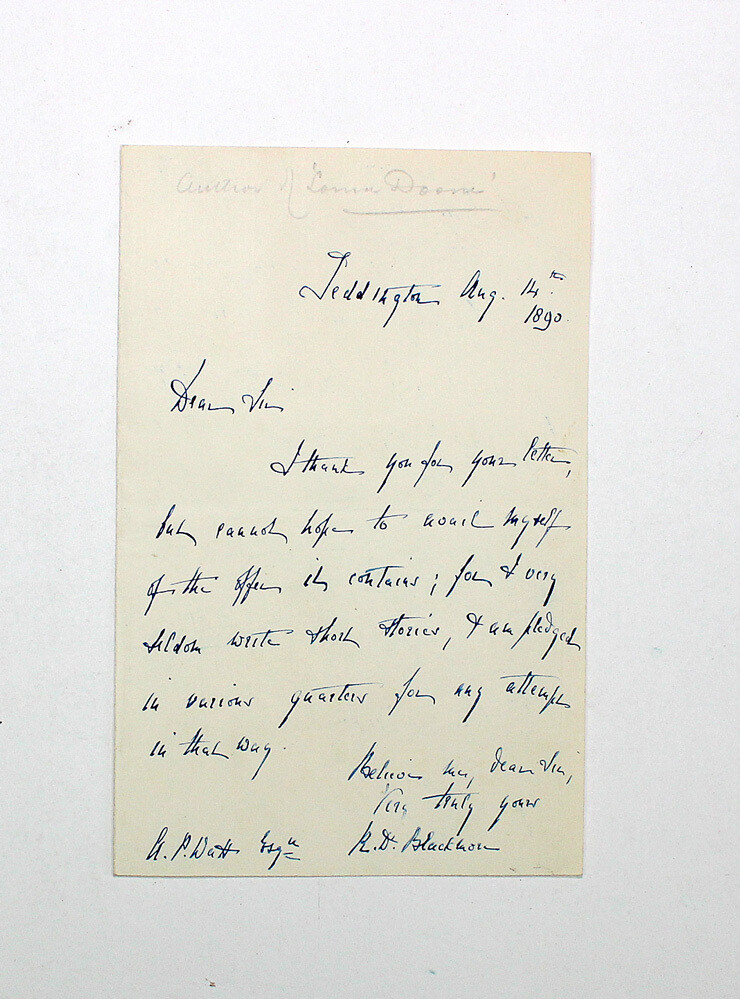 Author of 'Lorna Doone'
Teddington Aug. 14th
1890.
Dear Sir
I thank you for your letter,
but cannot hope to avail myself
of the offer it contains; for I very
seldom write short stories, & am pledged
in various quarters for any attempt
in that way.
Believe me, dear Sir,
Very truly yours
A. P. Watt Esqre R. D. Blackmore